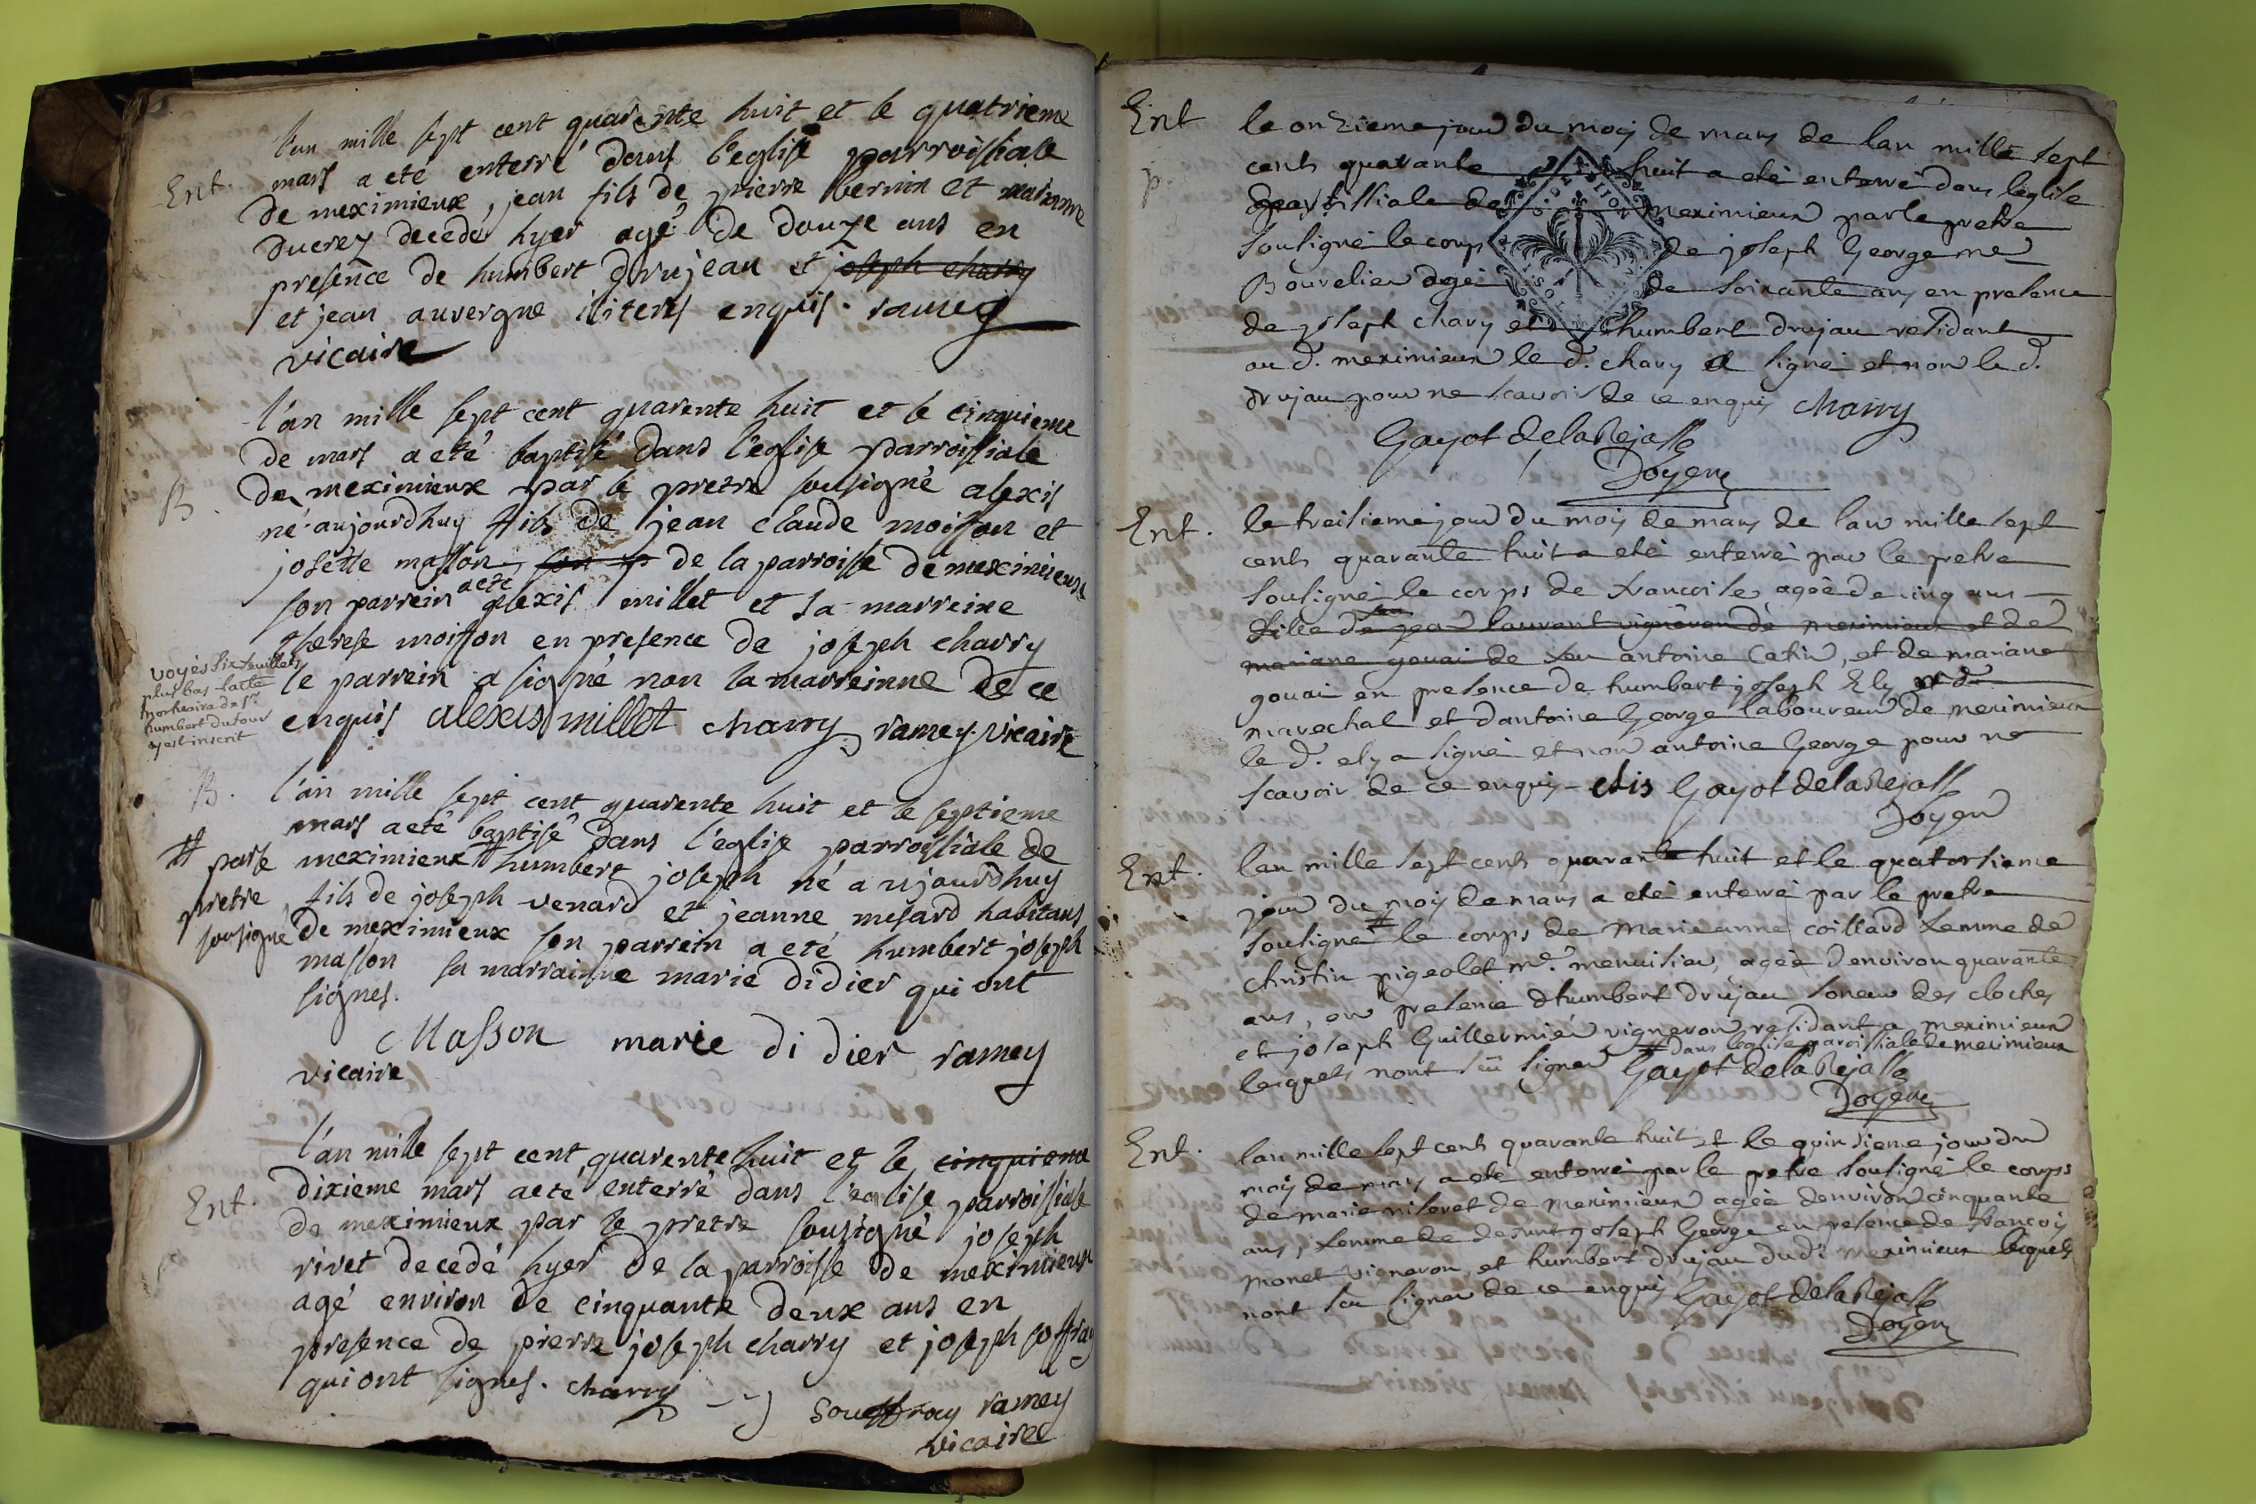 l'an mille sept cent quarente huit et le quatrieme
Ent. mars a eté enterré dans l'eglise parroissiale
de meximieux, jean fils de pierre bernin et marianne
ducrey decedé hyer agé de douze ans en
presence de humbert drujean et joseph charry
et jean auvergne iliteres enquis. ramey
vicaire
l'an mille sept cent quarente huit et le cinquieme
de mars a eté baptisé dans l'eglise parroissiale
B. de meximieux par le pretre sousigné alexis
né aujourdhuy fils de jean claude moisson et
josette masson, son p de la parroisse de meximieux
son parrein a eté alexis millet et sa marreine
therese moisson en presence de joseph charry
le parrein a signé non la marreinne de ce
enquis alexis millet charry ramey vicaire
voyés six feuillets
plus bas lacte
mortuaire de sr.
humbert dutour
y est inscrit
B. l'an mille sept cent quarente huit et le septieme
mars a eté baptisé dans l'eglise parroissiale de
meximieux # humbert joseph né aujourdhuy
# par le
pretre
sousigné
fils de joseph venard et jeanne mesard habitans
de meximieux son parrein a eté humbert joseph
masson sa marrainne marie didier qui ont
signes.
Masson marie di dier ramey
vicaire
l'an mille sept cent quarente huit et le cinquieme
Ent. dixieme mars a eté enterré dans l'eglise parroissiale
de meximieux par le pretre sousigné joseph
rivet decedé hyer de la parroisse de meximieux
agé environ de cinquante deux ans en
presence de pierre joseph charry et joseph soffray
qui ont signes. charry
souffray ramey
vicaire
Ent le onzieme jour du mois de mars de lan mille sept
cents quarante huit a eté enterré dans leglise
paroissiale de meximieux par le pretre
sousigné le corps de joseph George me
Bourelier agé de soixante ans en presence
de joseph chary et humbert drujau residant
au d. meximieux le d. chary a signé et non le d.
drujau pour ne scavoir de ce enquis charry
Gayot delaRejasse
Doyen
Ent. le treisieme jour du mois de mars de lan mille sept
cents quarante huit a eté enterré par le pretre
sousigné le corps de francoise agée de cinq ans
fille de feu jean laurent vigneron de meximieux et de
mariane gouai de feu antoine Catin, et de mariane
gouai en presence de humbert joseph Ely
marechal et dantoine George laboureur de meximieux
le d. ely a signé et non antoine George pour ne
scavoir de ce enquis elis Gayot delaRejasse
Doyen
Ent. lan mille sept cents quarante huit et le quatorsieme
jour du mois de mars a eté enterré par le pretre
sousigné # le corps de marieanne coillard femme de
christin pigeolet me. menuisier, agée denviron quarante
ans, en presence dhumbert drujau soneur des cloches
et joseph Guillermié vigneron residant a meximieux
# dans leglise paroissiale de meximieux
lesquels nont sçu signer Gayot delaRejasse
Doyen
Ent. lan mille sept cents quarante huit et le quinsieme jour du
mois de mars a eté enterré par le pretre sousigné le corps
de marie niseret de meximieux agée denviron cinquante
ans, femme de defunt joseph George en presence de francois
monet vigneron et humbert drujau dud. meximieux lesquels
nont sçu signer de ce enquis Gayot delaRejasse
Doyen